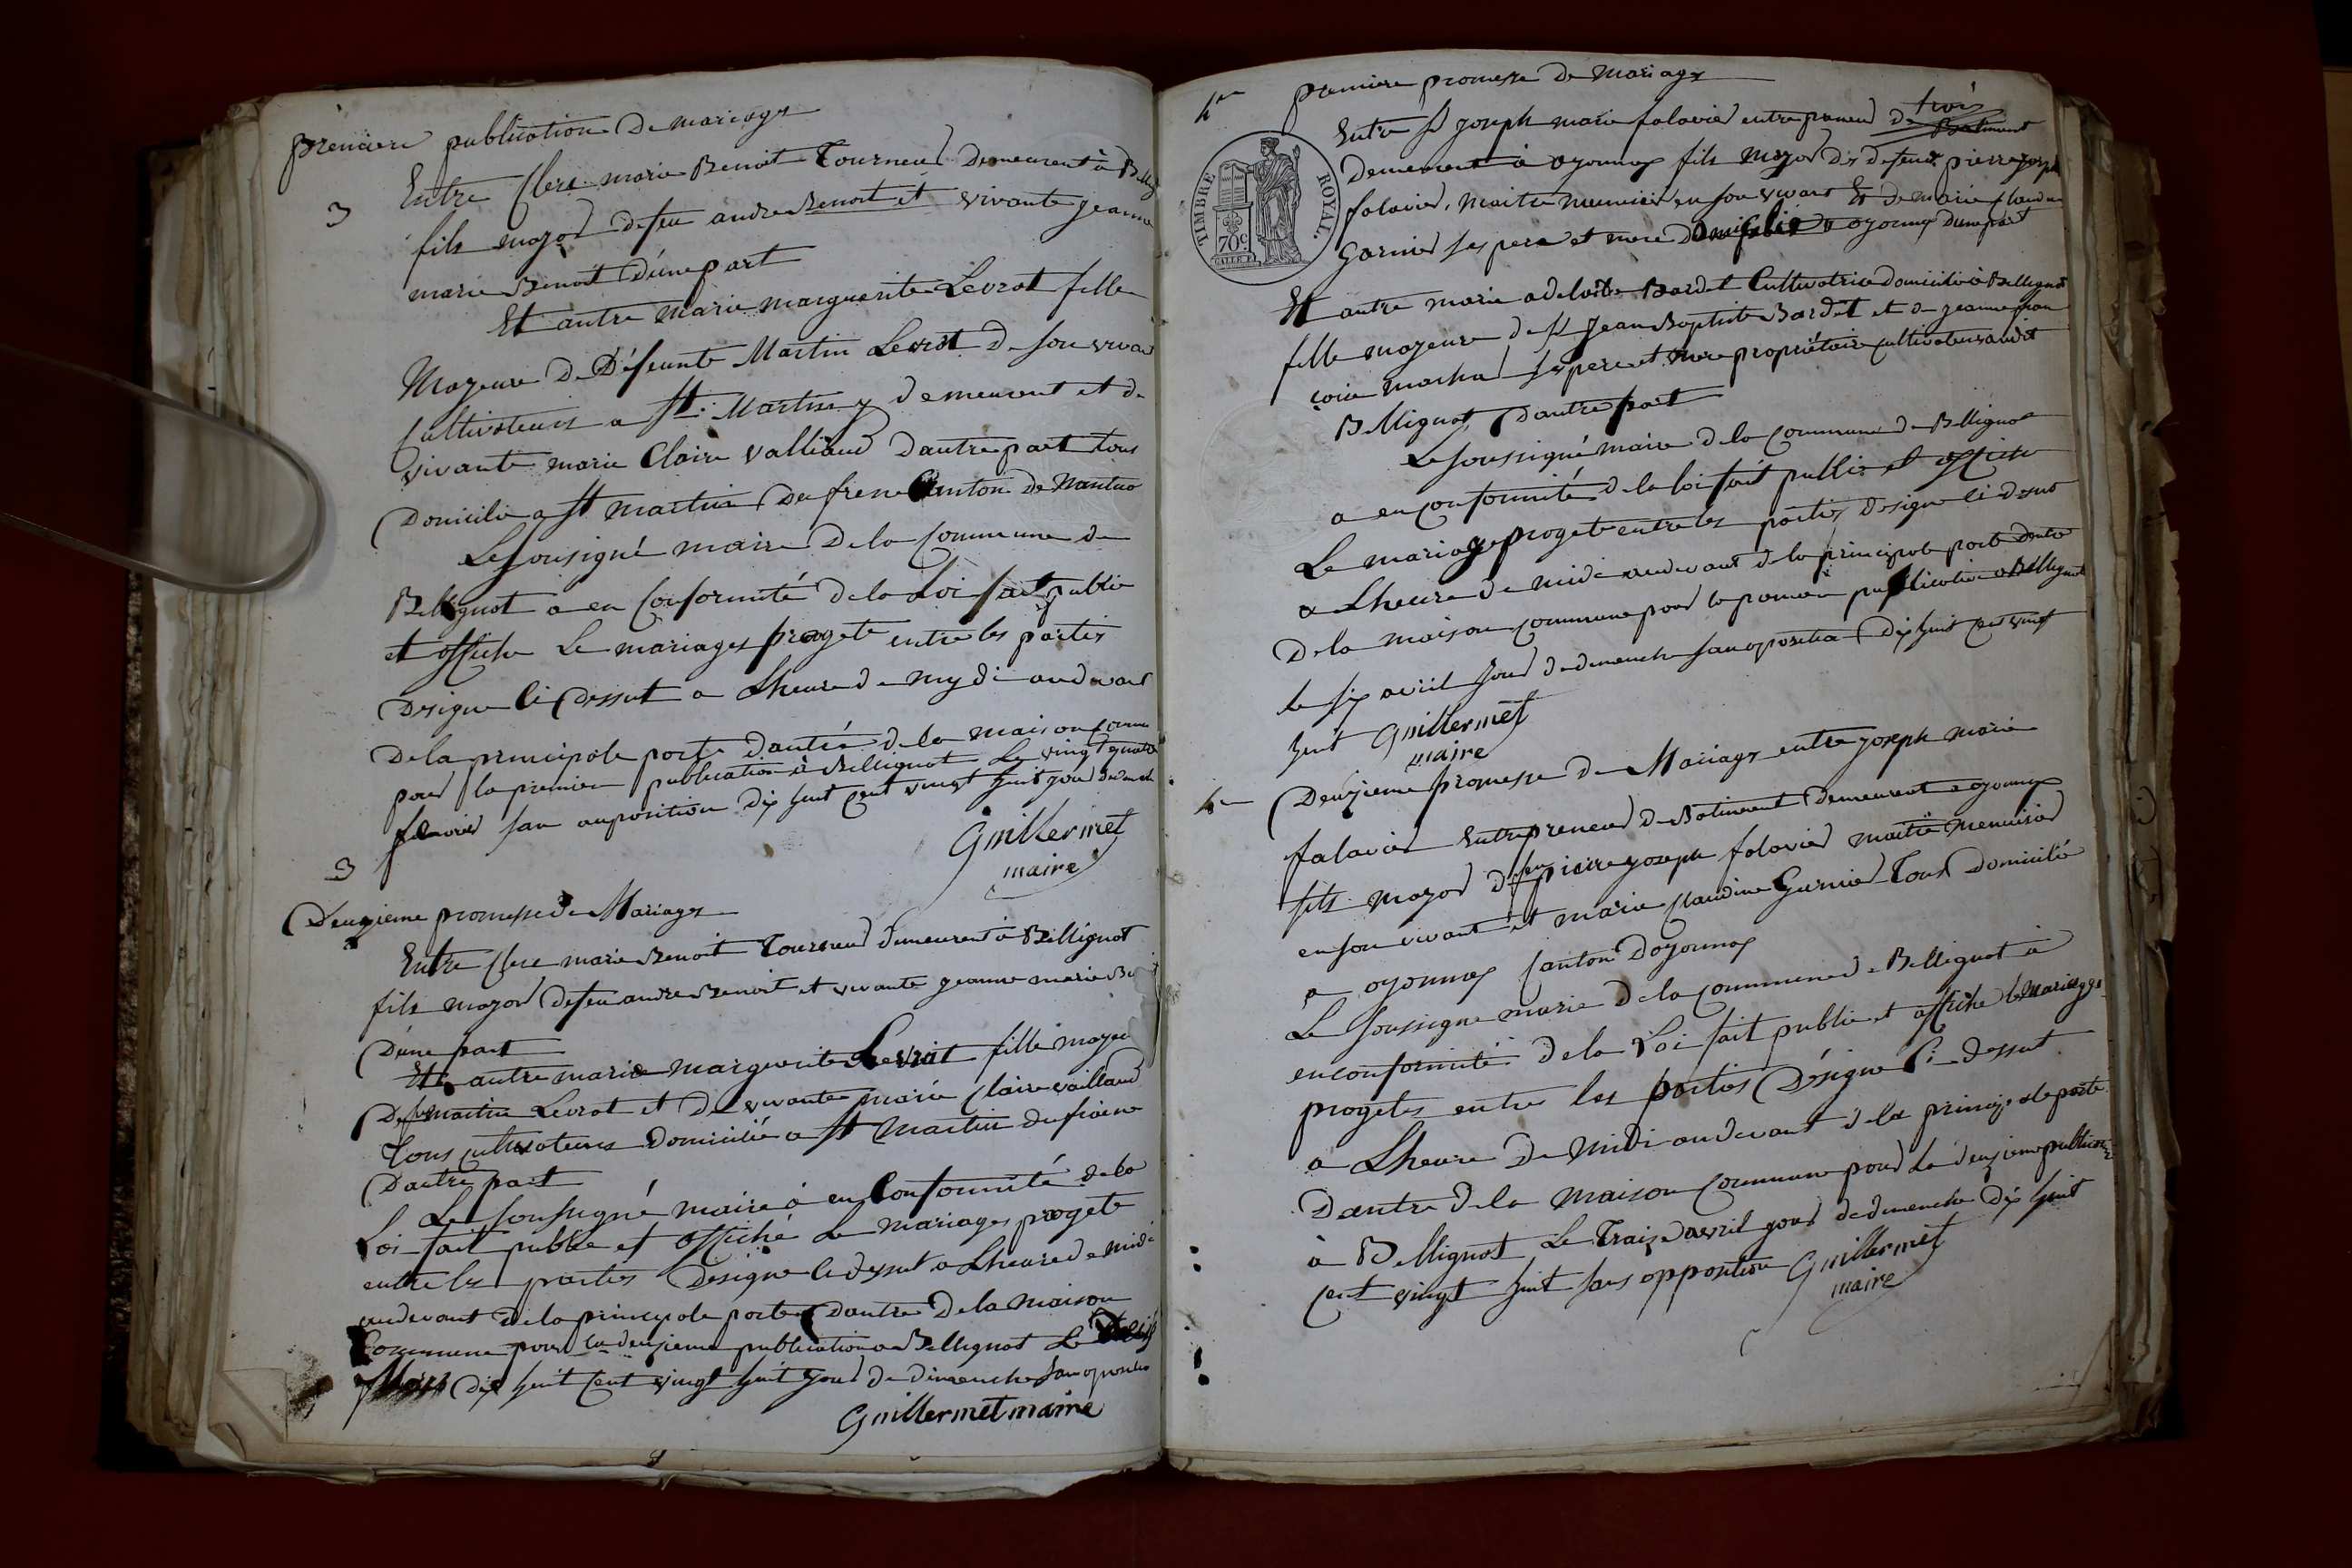 premiere publication de mariages
3
Entre Clere marie Benoit Tourneur demeurent à Bellig
fils major defeu andre Benoit et vivante jeanne
marie Benoit d'une part
Et autre marie marguerite Levrat fille
Mazeure de Défeunte Martin Levrat de son vivan
Cultivateurs a St. Martin y demeurent et de
vivante marie Claire valliand dautre part tous
Domicilie a St martin du frene Canton de Nantua
Le sousigné maire de la Commune de
Bellignot a en Conformité de la Loi fait publié
et affiche Le mariages progete entre les partis
designe ci dessut a Lheure de mydi audevant
de la principale porte dantré de la maison comm
pour la premiere publication à Bellignot Le vingt quatre
fevrier san auposition dix huit cent vingt huit jour dedimench
Guillermet
maire
3
Deuzieme promesse de Mariages
Entre Clere marie Benoit Tourneur demeurent à Bellignot
fils mazor defeu andre Benoit et vivante jeanne marie Be
d'une part
Et autre marie marguerite Levrat fille mazeu
De feu martin Levrat et de vivante marie Claire vailland
Tous cultivateurs domicilié a St Martin du fraine
dautre part
Le soussigné maire a en Conformité de la
Loi fait publie et affiché Le mariages progete
entre les parties designe ci dessut a Lheure de midi
audevant de la principale porte dantre de la Maison
Commune pour la deuzieme publication a Bellignot Le
Mars dix huit Cent vingt huit jour de dimenche san oposition
Guillermet maire
4
premiere promesse de Mariages
Entre Sr Joseph marie falavier entrepreneur de trois
Batiment
demeurent à oyonnax fils mazor des defeunt pierre joseph
falavier, Maitre menuisier en son vivant Et de marie Claudine
Garnier ses pere et mere domicilié a oyonnax dunepart
TIMBRE ROYAL.
70c.
Et autre marie adelaide Bardet Cultivatrice domicilié à Bellignot
fille mazeure de Sr Jean Baptiste Bardet et de jeanne fran
coise machard ses pere et mere propriétaire cultivateurs audit
Bellignot dautre part
Le soussigné maire de la Commune de Bellignot
a en conformité de la loi fait publie et affiche
Le mariage progete entre les partis designe ci dessus
a Lheure de midi audevant de la principale porte dentré
de la maison commune pour la premiere publication a Bellignot
le six avril jour de dimenche san oposition dix huit cent vingt
huit Guillermet
maire
4
Deuzieme promesse de Mariage entre joseph marie
falavier Entrepreneur de Batiment demeurent a oyonnax
fils mazor de feu pierre joseph falavier maitre menuisier
en son vivant et marie Claudine Garnier Tous domicilié
a oyonnax Canton doyonnax
Le soussigne marie de la commune de Bellignot à
enconformité de la Loi fait publie et affiche le Mariages
progetes entre les parties Désigne Ci dessut
a Lheure de midi audevant de la principale porte
dantre de la Maison Commune pour la deuzieme publication
à Bellignot Le Traize avril jour dedimenche dix huit
cent vingt huit sans opposition Guillermet
maire